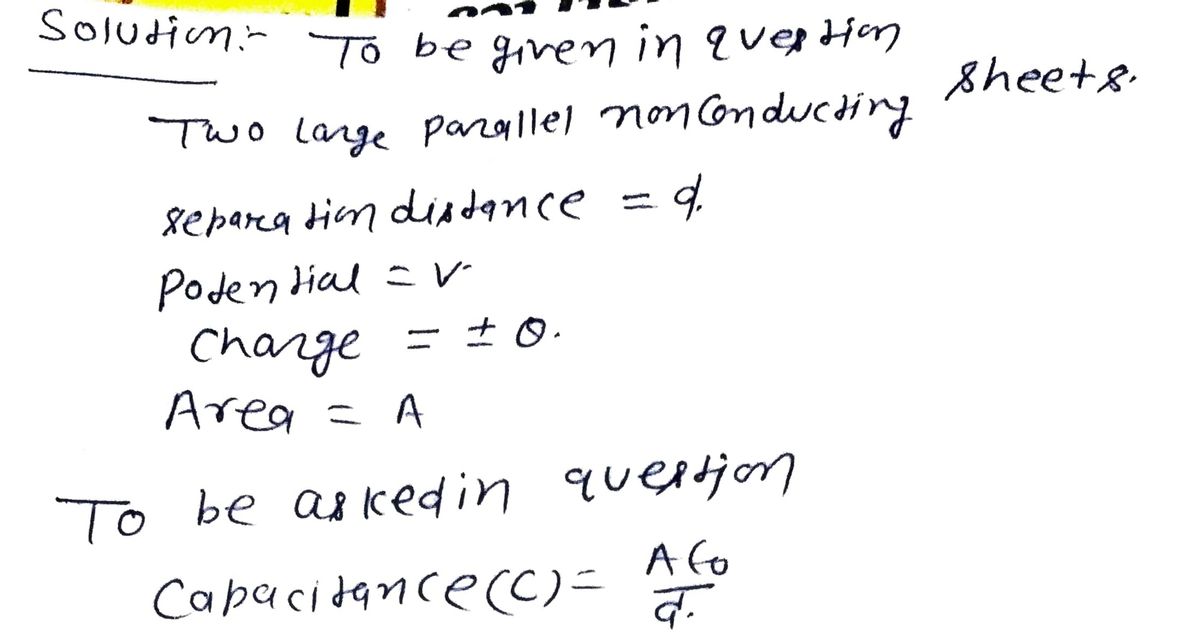 Solution:- To be given in question
Two large parallel nonconducting sheets.
separation distance = d.
Potential = V
Charge = ± Q.
Area = A
To be asked in question
Capacitance (C) = A ϵ₀ / d.